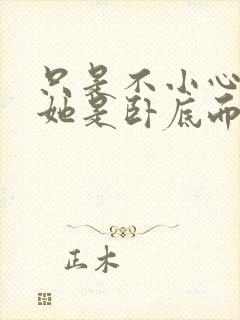 只是不小心
她是卧底而
正木